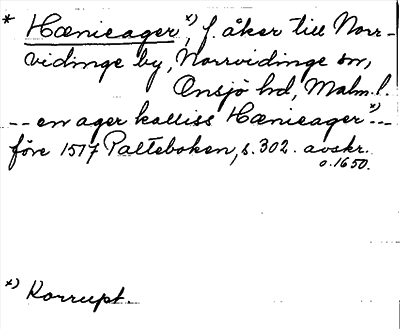 * Hænieager *), f. åker till Norr-
vidinge by, Norrvidinge sn,
Onsjö hd, Malm. l.
-- en ager kalliss Hænieager *) --
före 1517 Palteboken, s. 302. avskr.
o. 1650.
*) Korrupt.